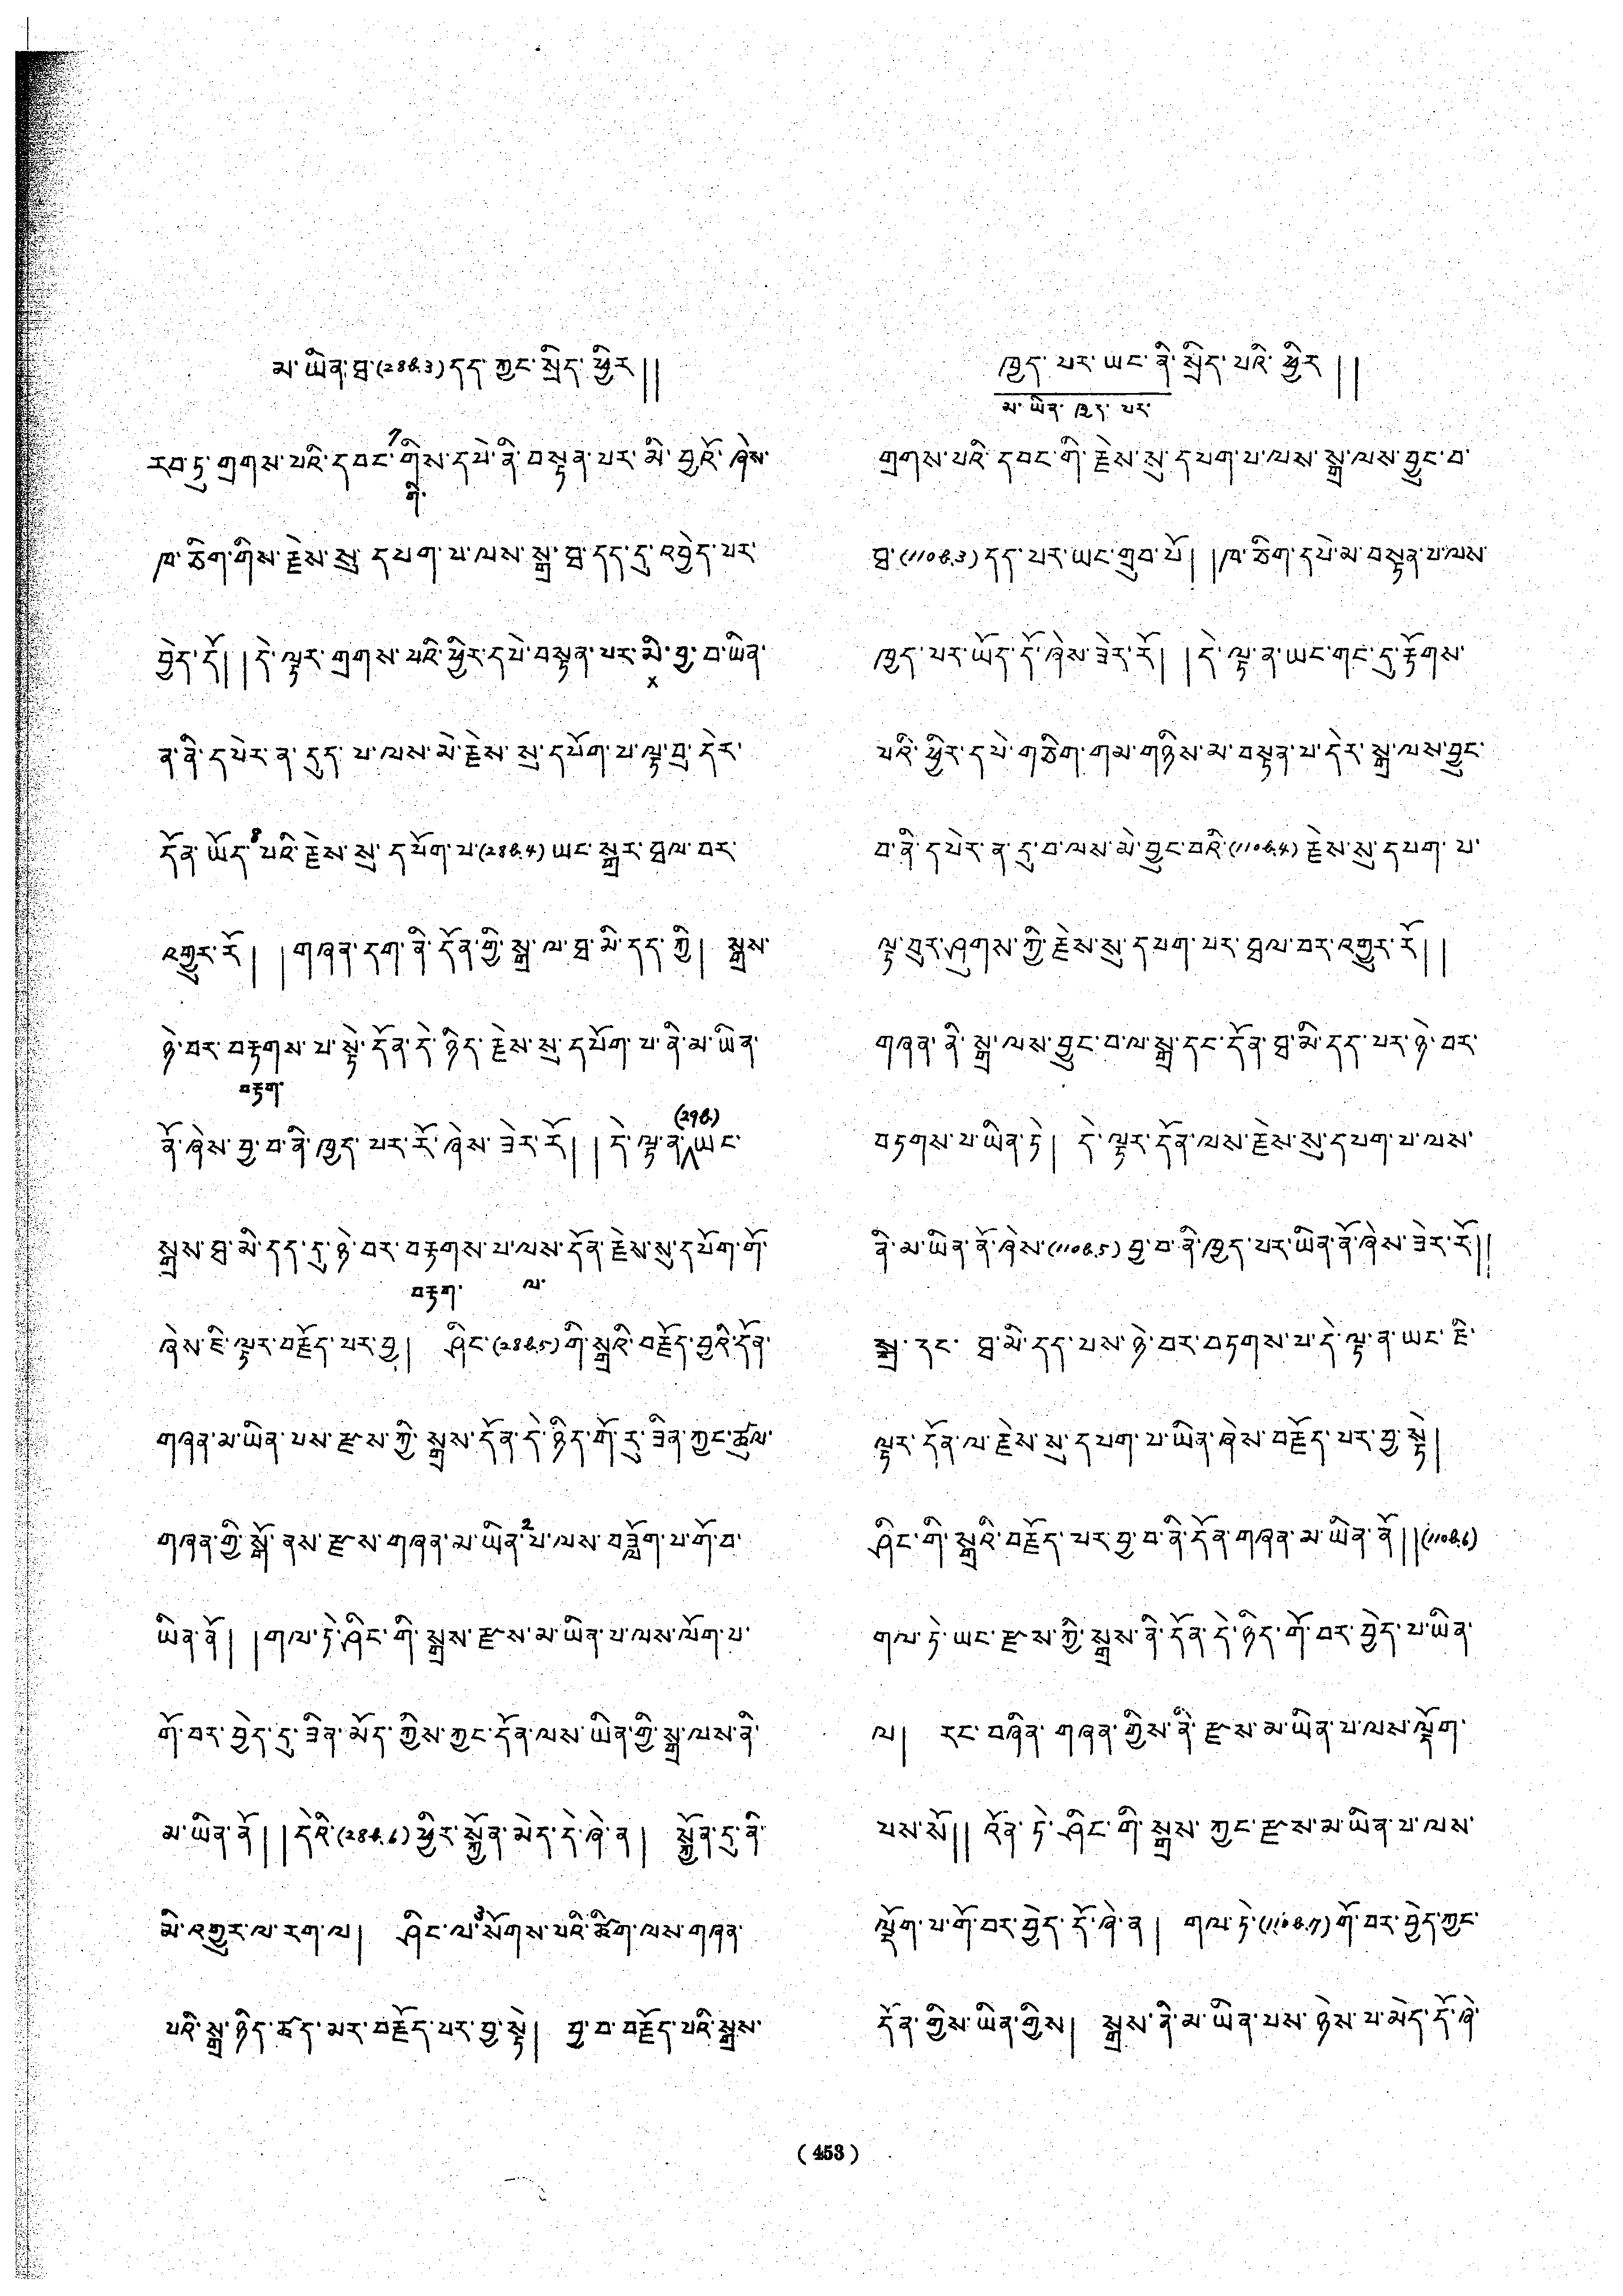 མ་ཡིན་ཐ་(28b.3)དད་ཀྱང་སྲིད་ཕྱིར༎
རབ་ཏུ་གྲགས་པའི་དབང་1གིས་དཔེ་ནི་བསྟན་པར་མི་བྱའོ་ཞེས་
གི་
ཁ་ཅིག་གིས་རྗེས་སུ་དཔག་པ་ལས་སྒྲ་ཐ་དད་དུ་འབྱེད་པར་
བྱེད་དོ། །དེ་ལྟར་གྲགས་པའི་ཕྱིར་དཔེ་བསྟན་པར་མི་བྱ་བ་ཡིན་
x
ན་ནི་དཔེར་ན་དུད་པ་ལས་མེ་རྗེས་སུ་དཔོག་པ་ལྟ་བུ་དེར་
དོན་ཡོད་པའི་རྗེས་སུ་དཔོག་པ་(28b.4)ཡང་སྒྲར་ཐལ་བར་
འགྱུར་རོ། །གཞན་དག་ནི་དོན་གྱི་སྒྲ་ལ་ཐ་མི་དད་ཀྱི། སྒྲས་
ཉེ་བར་བརྟགས་པ་སྟེ་དོན་དེ་ཉིད་རྗེས་སུ་དཔོག་པ་ནི་མ་ཡིན་
བརྟག་
(29b.)
ནོ་ཞེས་བྱ་བ་ནི་ཁྱད་པར་རོ་ཞེས་ཟེར་རོ། །དེ་ལྟ་ན་ཡང་
སྒྲས་ཐ་མི་དད་དུ་ཉེ་བར་བརྟགས་པ་ལས་དོན་རྗེས་སུ་དཔོག་གོ་
བརྟག་ ལ་
ཞེས་ཇི་ལྟར་བརྗོད་པར་བྱ། ཤིང་(28b.5)གི་སྒྲའི་བརྗོད་བྱའི་དོན་
གཞན་མ་ཡིན་པས་རྫས་ཀྱི་སྒྲས་དོན་དེ་ཉིད་གོ་རུ་ཟིན་ཀྱང་ཚུལ་
གཞན་གྱི་སྒོ་ནས་རྫས་གཞན་མ་ཡིན་2པ་ལས་བཟློག་པ་གོ་བ་
ཡིན་ནོ། །གལ་ཏེ་ཤིང་གི་སྒྲས་རྫས་མ་ཡིན་པ་ལས་ལོག་པ་
གོ་བར་བྱེད་དུ་ཟིན་མོད་ཀྱིས་ཀྱང་དོན་ལས་ཡིན་གྱི་སྒྲ་ལས་ནི་
མ་ཡིན་ནོ། །དེའི་(28b.6)ཕྱིར་སྐྱོན་མེད་དེ་ཞེ་ན། སྐྱོན་དུ་ནི་
མི་འགྱུར་ལ་རག་ལ། ཤིང་ལ་3སོགས་པའི་ཚིག་ལས་གཞན་
པའི་སྒྲ་ཉིད་ཚད་མར་བརྗོད་པར་བྱ་སྟེ། བྱ་བ་བརྗོད་པའི་སྒྲས་
ཁྱད་པར་ཡང་ནི་སྲིད་པའི་ཕྱིར༎
མ་ཡིན་ཁྱད་པར་
གྲགས་པའི་དབང་གི་རྗེས་སུ་དཔག་པ་ལས་སྒྲ་ལས་བྱུང་བ་
ཐ་(110b.3)དད་པར་ཡང་གྲུབ་པོ། །ཁ་ཅིག་དཔེ་མ་བསྟན་པ་ལས་
ཁྱད་པར་ཡོད་དོ་ཞེས་ཟེར་རོ། །དེ་ལྟ་ན་ཡང་གང་དུ་རྟོགས་
པའི་ཕྱིར་དཔེ་གཅིག་གམ་གཉིས་མ་བསྟན་པ་དེར་སྒྲ་ལས་བྱུང་
བ་ནི་དཔེར་ན་དུ་བ་ལས་མེ་བྱུང་བའི་(110b.4)རྗེས་སུ་དཔག་པ་
ལྟ་བུར་ཤུགས་ཀྱི་རྗེས་སུ་དཔག་པར་ཐལ་བར་འགྱུར་རོ༎
གཞན་ནི་སྒྲ་ལས་བྱུང་བ་ལ་སྒྲ་དང་དོན་ཐ་མི་དད་པར་ཉེ་བར་
བཏགས་པ་ཡིན་ཏེ། དེ་ལྟར་དོན་ལས་རྗེས་སུ་དཔག་པ་ལས་
ནི་མ་ཡིན་ནོ་ཞེས་(110b.5)བྱ་བ་ནི་ཁྱད་པར་ཡིན་ནོ་ཞེས་ཟེར་རོ༎
སྒྲ་དང་ ཐ་མི་དད་པས་ཉེ་བར་བཏགས་པ་དེ་ལྟ་ན་ཡང་ཇི་
ལྟར་དོན་ལ་རྗེས་སུ་དཔག་པ་ཡིན་ཞེས་བརྗོད་པར་བྱ་སྟེ།
ཤིང་གི་སྒྲའི་བརྗོད་པར་བྱ་བ་ནི་དོན་གཞན་མ་ཡིན་ནོ༎(110b.6)
གལ་ཏེ་ཡང་རྫས་ཀྱི་སྒྲས་ནི་དོན་དེ་ཉིད་གོ་བར་བྱེད་པ་ཡིན་
ལ། རང་བཞིན་གཞན་གྱིས་ནི་རྫས་མ་ཡིན་པ་ལས་ལྡོག་
པས་སོ༎ འོན་ཏེ་ཤིང་གི་སྒྲས་ཀྱང་རྫས་མ་ཡིན་པ་ལས་
ལྡོག་པ་གོ་བར་བྱེད་དོ་ཞེ་ན། གལ་ཏེ་(110b.7)གོ་བར་བྱེད་ཀྱང་
དོན་གྱིས་ཡིན་གྱིས། སྒྲས་ནི་མ་ཡིན་པས་ཉེས་པ་མེད་དོ་ཞེ་
( 453 )